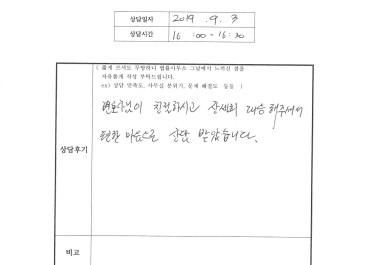 상담일자 2019. 9. 3
상담시간 16 :00 - 16:30
( 짧게 쓰셔도 무방하니 법률사무소 그날에서 느끼신 점을
자유롭게 작성 부탁드립니다.
ex) 상담 만족도, 사무실 분위기, 문제 해결도 등등 )
변호사님이 친절하시고 상세히 대응해주셔서
편한 마음으로 상담 받았습니다.
상담후기
비고